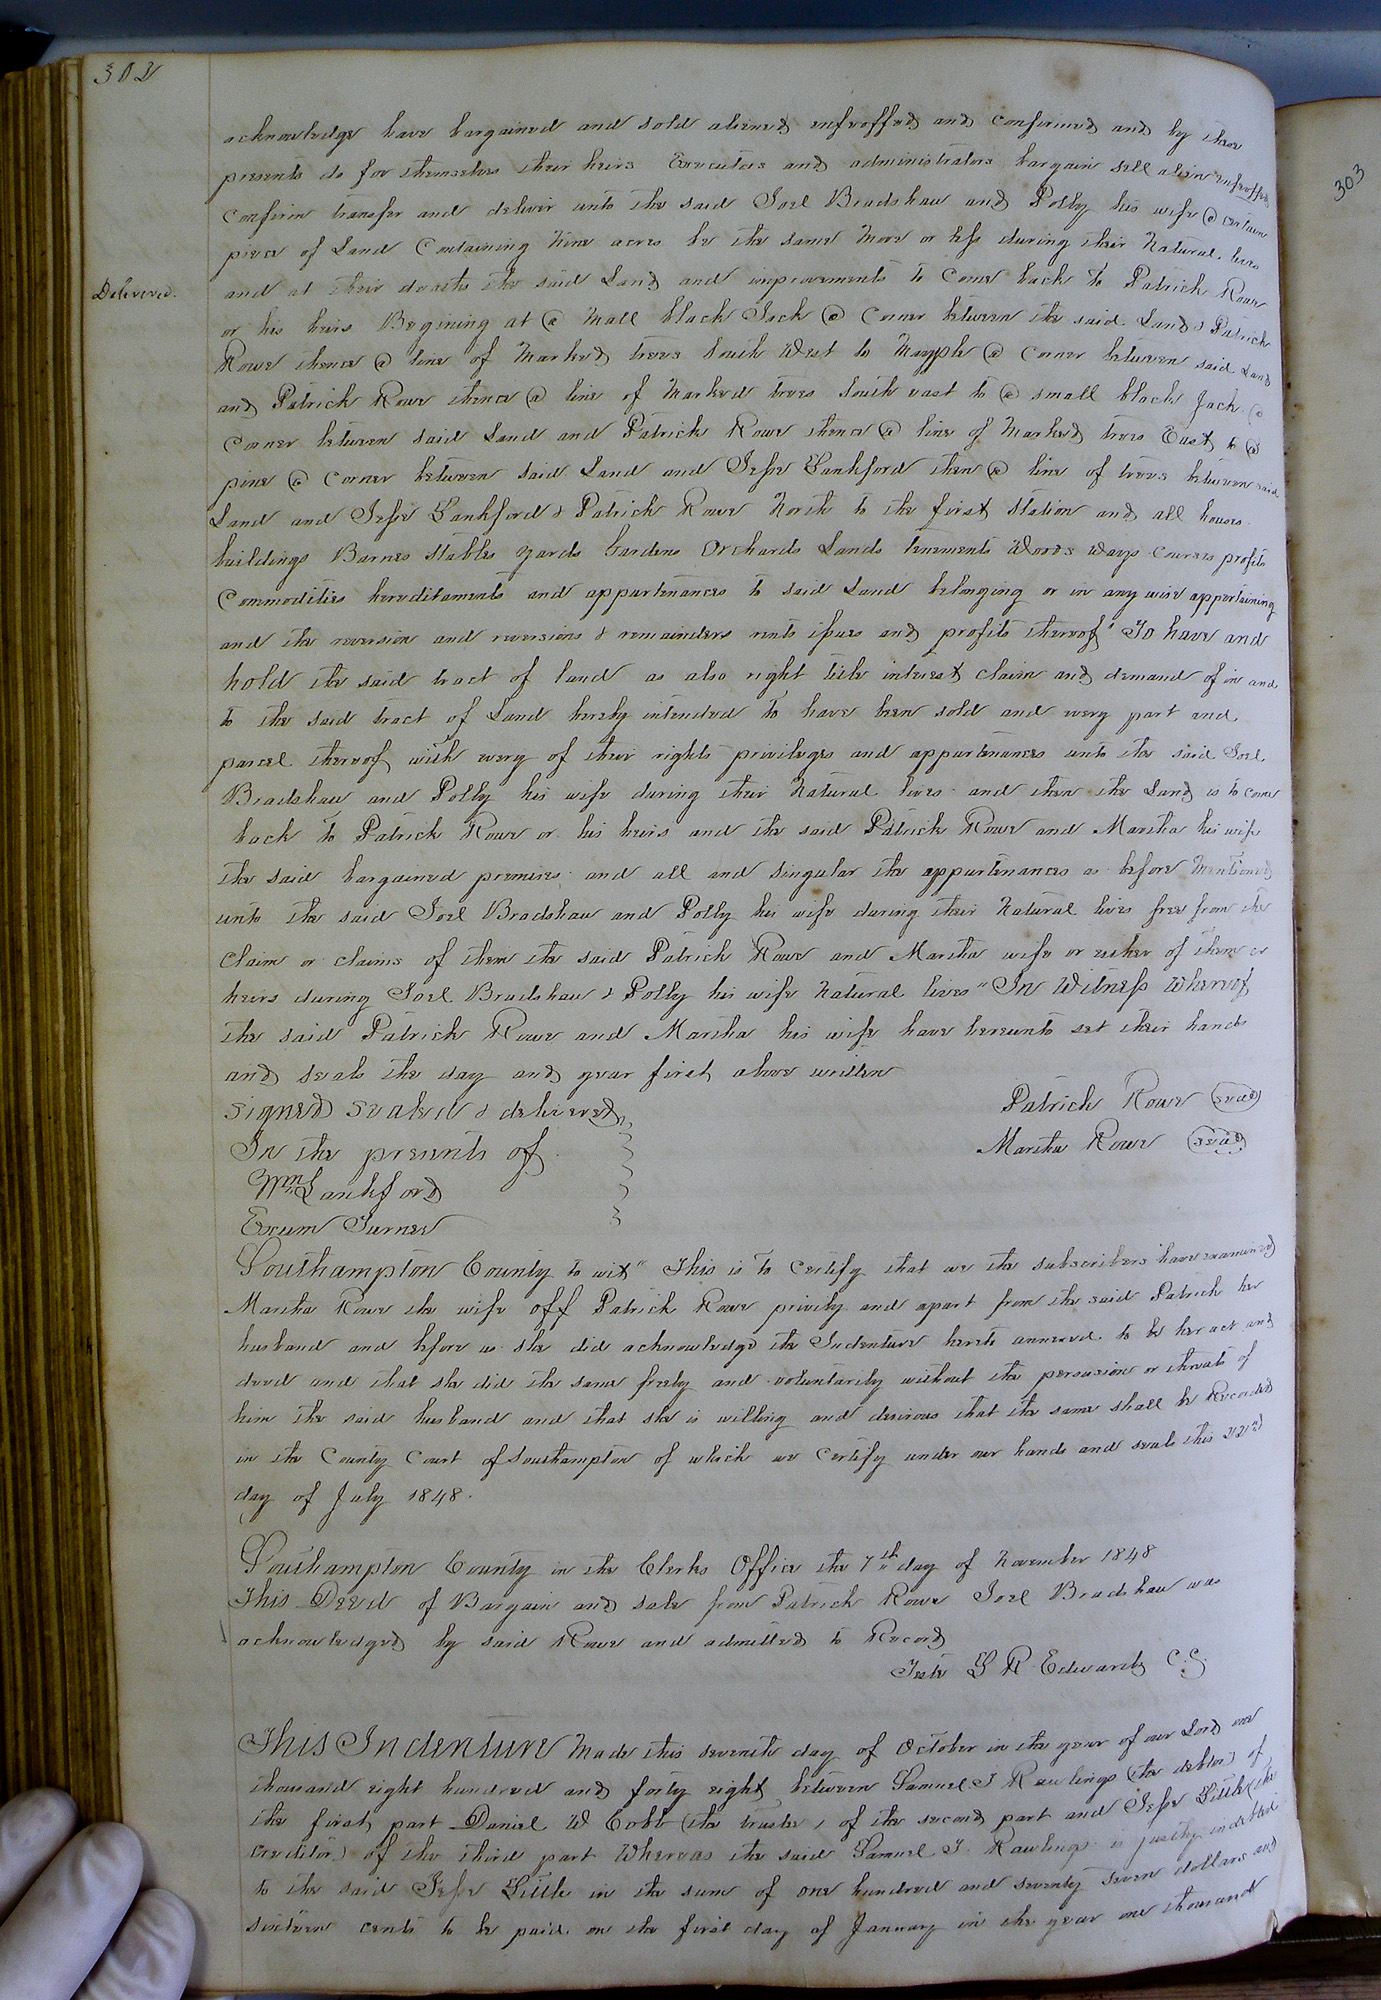 302
acknowledge have bargained and sold aliened enfeoffed and confirmed and by these
presents do for themselves their heirs Executors and administrators bargain sell alien enfeoffed
confirm transfer and deliver unto the said Joel Bradshaw and Polly his wife @ certain
piece of Land Containing Nine acres be the same More or less during their Natural lives
Delivered.
and at their deaths the said Land and improvements to Come back to Patrick Rowe
or his heirs Begining at @ Mall black Jack @ Corner between the said Land & Patrick
Rowe thence @ line of Marked trees South West to Mayple @ Corner between said Land
and Patrick Rowe thence @ line of Marked trees South east to @ small black Jack @
Corner between said Land and Patrick Rowe thence @ line of Marked trees East to @
pine @ Corner between said Land and Jesse Lankford then @ line of trees between said
Land and Jesse Lankford & Patrick Rowe North to the first Station and all houses
buildings Barnes Stables yards Gardens Orchards Lands tenements Woods Ways Courses profits
Commodities hereditaments and appurtenances to said Land belonging or in any wise appertaining
and the reversion and reversions & remainders rents issues and profits thereof" To have and
hold the said tract of land as also right title interest claim and demand of in and
to the said tract of Land hereby intended to have been sold and every part and
parcel thereof with every of their rights privileges and appurtenances unto the said Joel
Bradshaw and Polly his wife during their Natural lives and then the Land is to come
back to Patrick Rowe or his heirs and the said Patrick Rowe and Martha his wife
the said bargained premises and all and singular the appurtenances as before Mentioned
unto the said Joel Bradshaw and Polly his wife during their Natural lives free from the
Claim or claims of them the said Patrick Rowe and Martha wife or either of them or
heirs during Joel Bradshaw & Polly his wife Natural lives" In Witness Whereof
the said Patrick Rowe and Martha his wife have hereunto set their hands
and seals the day and year first above written
Signed Sealed & delivered Patrick Rowe (seal)
In the presents of Martha Rowe (seal)
Wm Lankford
Exum Turner
Southampton County to wit" This is to Certify that we the subscribers have examined
Martha Rowe the wife off Patrick Rowe privily and apart from the said Patrick her
husband and before us she did acknowledge the Indenture hereto annexed to be her act and
deed and that she did the same freely and voluntarily without the persasion or threats of
him the said husband and that she is willing and desirous that the same shall be Recorded
in the County Court of Southampton of which we Certify under our hands and seals this 22nd
day of July 1848.
Southampton County in the Clerks Office the 7th day of November 1848
This Deed of Bargain and sale from Patrick Rowe Joel Bradshaw was
acknowledged by said Rowe and admitted to Record
Teste L R Edwards C.C.
This Indenture Made this seventh day of October in the year of our Lord one
thousand eight hundred and forty eight between Samuel J Rawlings (the debtor) of
the first part Daniel W Cobb (the trustee) of the second part and Jesse Little (the
creditor) of the third part Whereas the said Samuel J Rawlings is justly indebted
to the said Jesse Little in the sum of one hundred and seventy seven dollars and
sixteen cents to be paid on the first day of January in the year one thousand
303